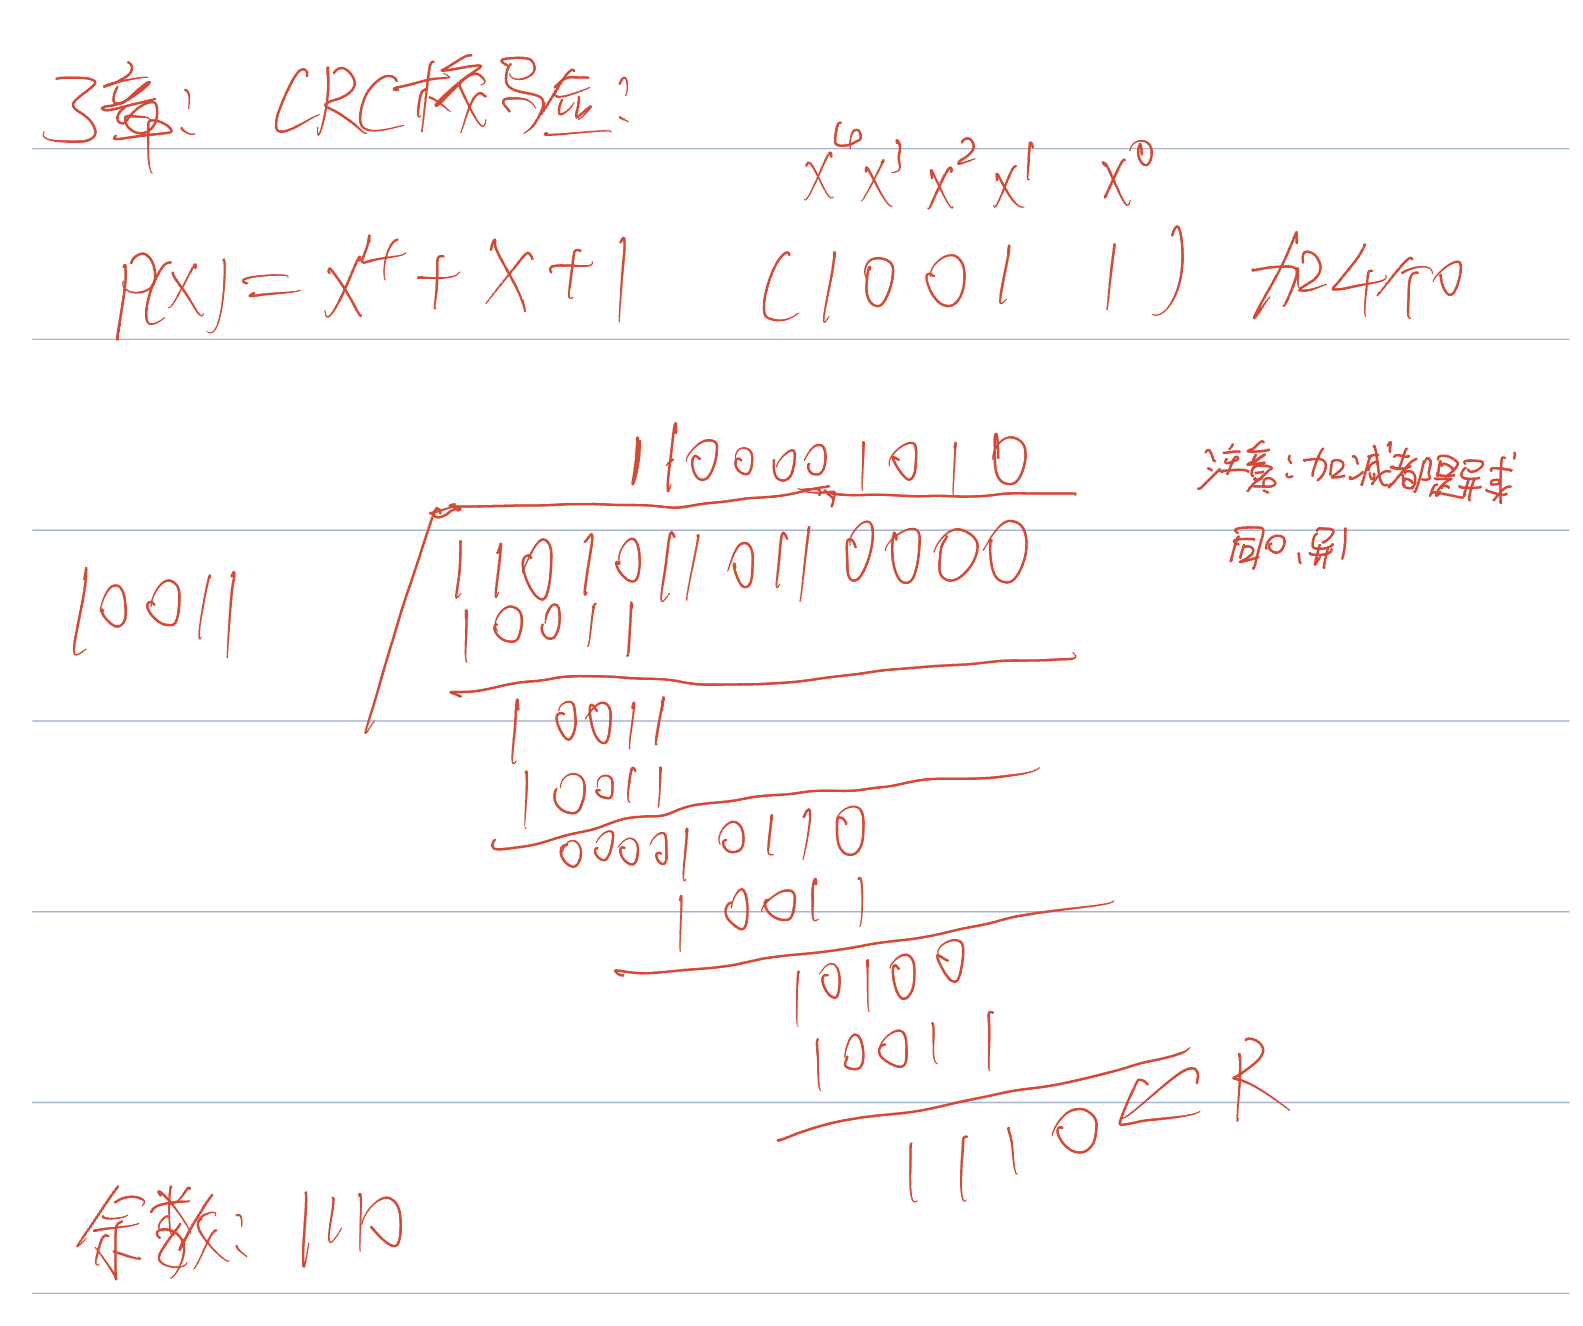 3章: CRC校验:
x⁴ x³ x² x¹ x⁰
P(x)=x⁴+x+1 (10011) 加4个0
1100001010
注意:加减都是异或
同0、异1
10011 11010110110000
10011
10011
10011
000010110
10011
10100
10011
1110 ← R
余数: 1110